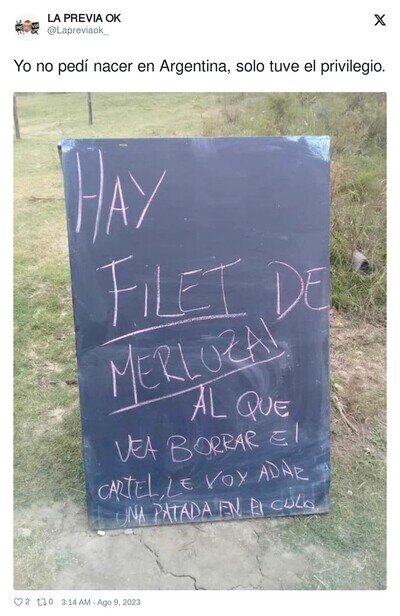 LA PREVIA OK
@Lapreviaok_
X
Yo no pedí nacer en Argentina, solo tuve el privilegio.
HAY
FILET DE
MERLUZA!
AL QUE
VEA BORRAR El
CARTEL, LE VOY ADAR
UNA PATADA EN El CULO
2 0 3:14 AM - Ago 9, 2023